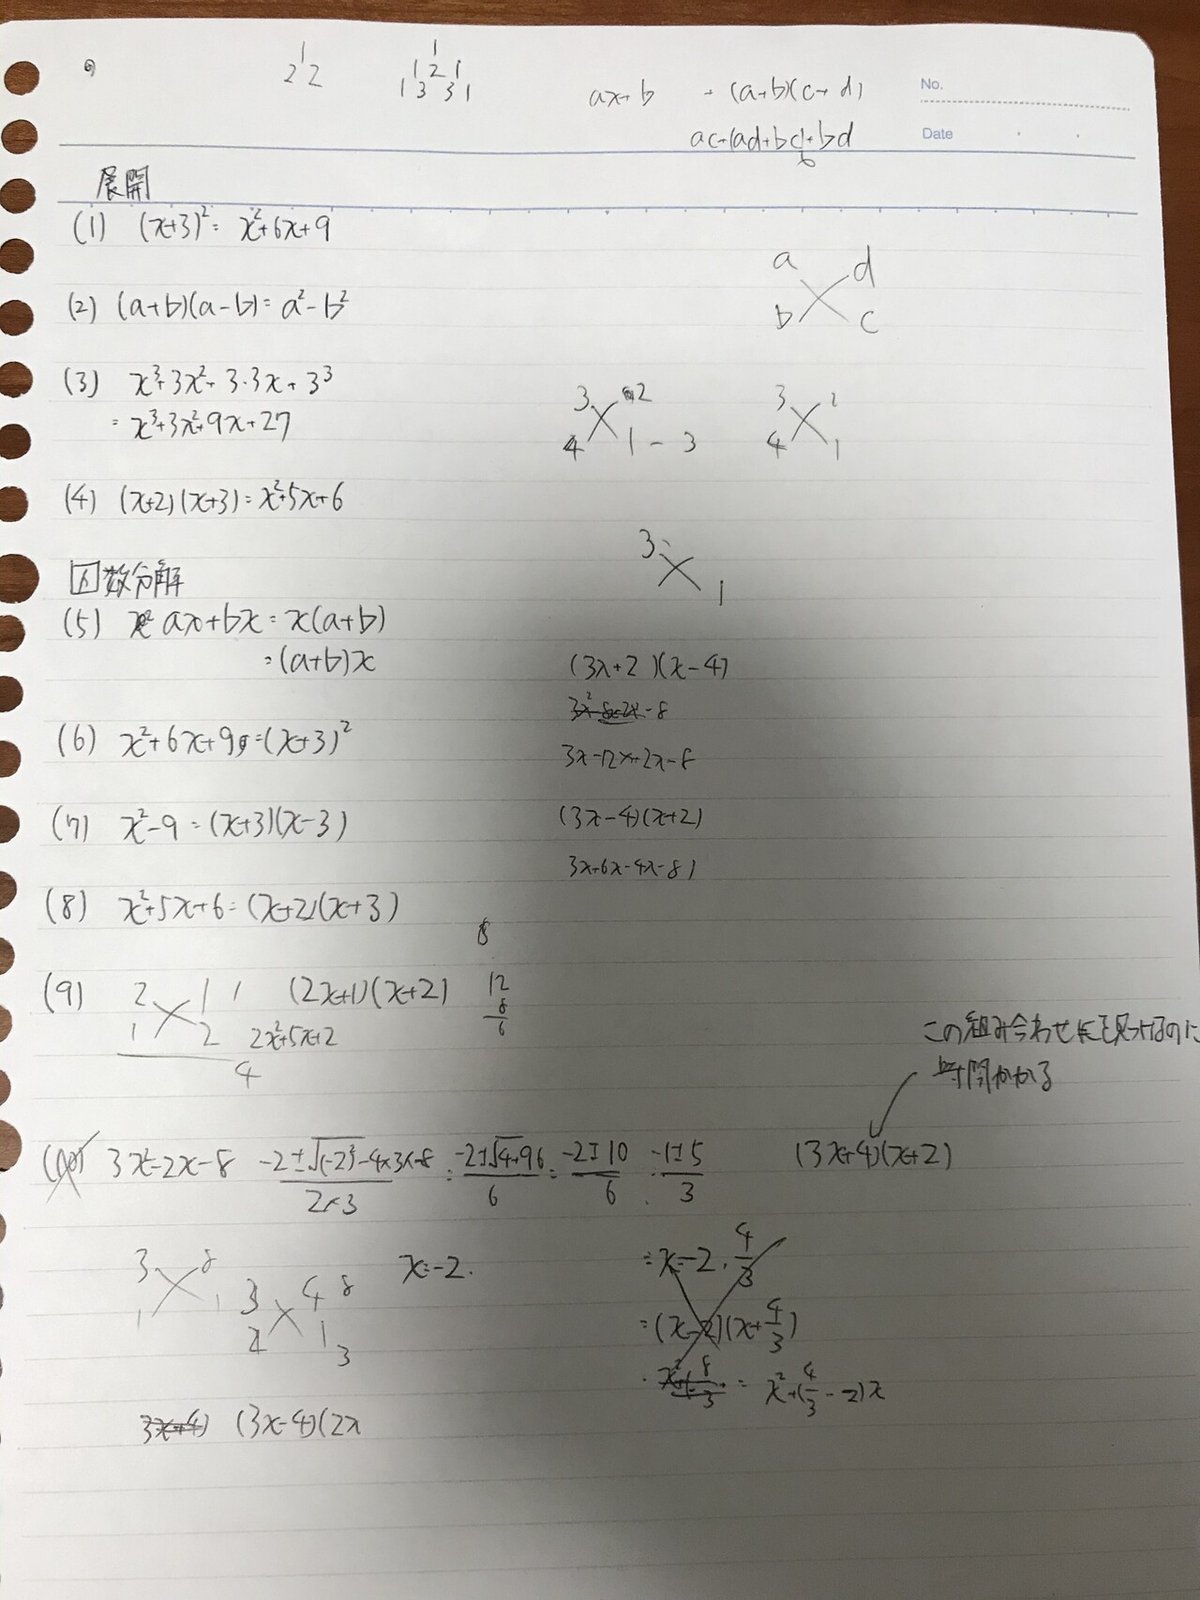 1
2 2
1
1 2 1
1 3 3 1
ax+b
(a+b)(c+d)
ac+(ad+bc)+bd
b
No.
Date
展開
(1) (x+3)²= x²+6x+9
(2) (a+b)(a-b)=a²-b²
(3) x³+3x²+3・3x+3³
=x³+3x²+9x+27
(4) (x+2)(x+3)=x²+5x+6
a d
b c
3 2
4 1 - 3
3 2
4 1
3
1
因数分解
(5) ax+bx=x(a+b)
=(a+b)x
(6) x²+6x+9=(x+3)²
(7) x²-9=(x+3)(x-3)
(8) x²+5x+6=(x+2)(x+3)
(3x+2)(x-4)
3x²-8x-2x-8
3x-12x+2x-8
(3x-4)(x+2)
3x+6x-4x-8
8
(9) 2 1 1 (2x+1)(x+2)
1 2 2x²+5x+2
4
12
8
6
この組み合わせを見つけるのに
時間かかる
(10) 3x²-2x-8 -2±√(-2)²-4×3×-8/2×3 = -2±√4+96/6 = -2±10/6 = -1±5/3
(3x+4)(x+2)
3 8
1 1
3 4 8
2 1 3
x=-2.
=x=-2, 4/3
=(x-2)(x+4/3)
= x²+(4/3-2)x
3x+4) (3x-4)(2x